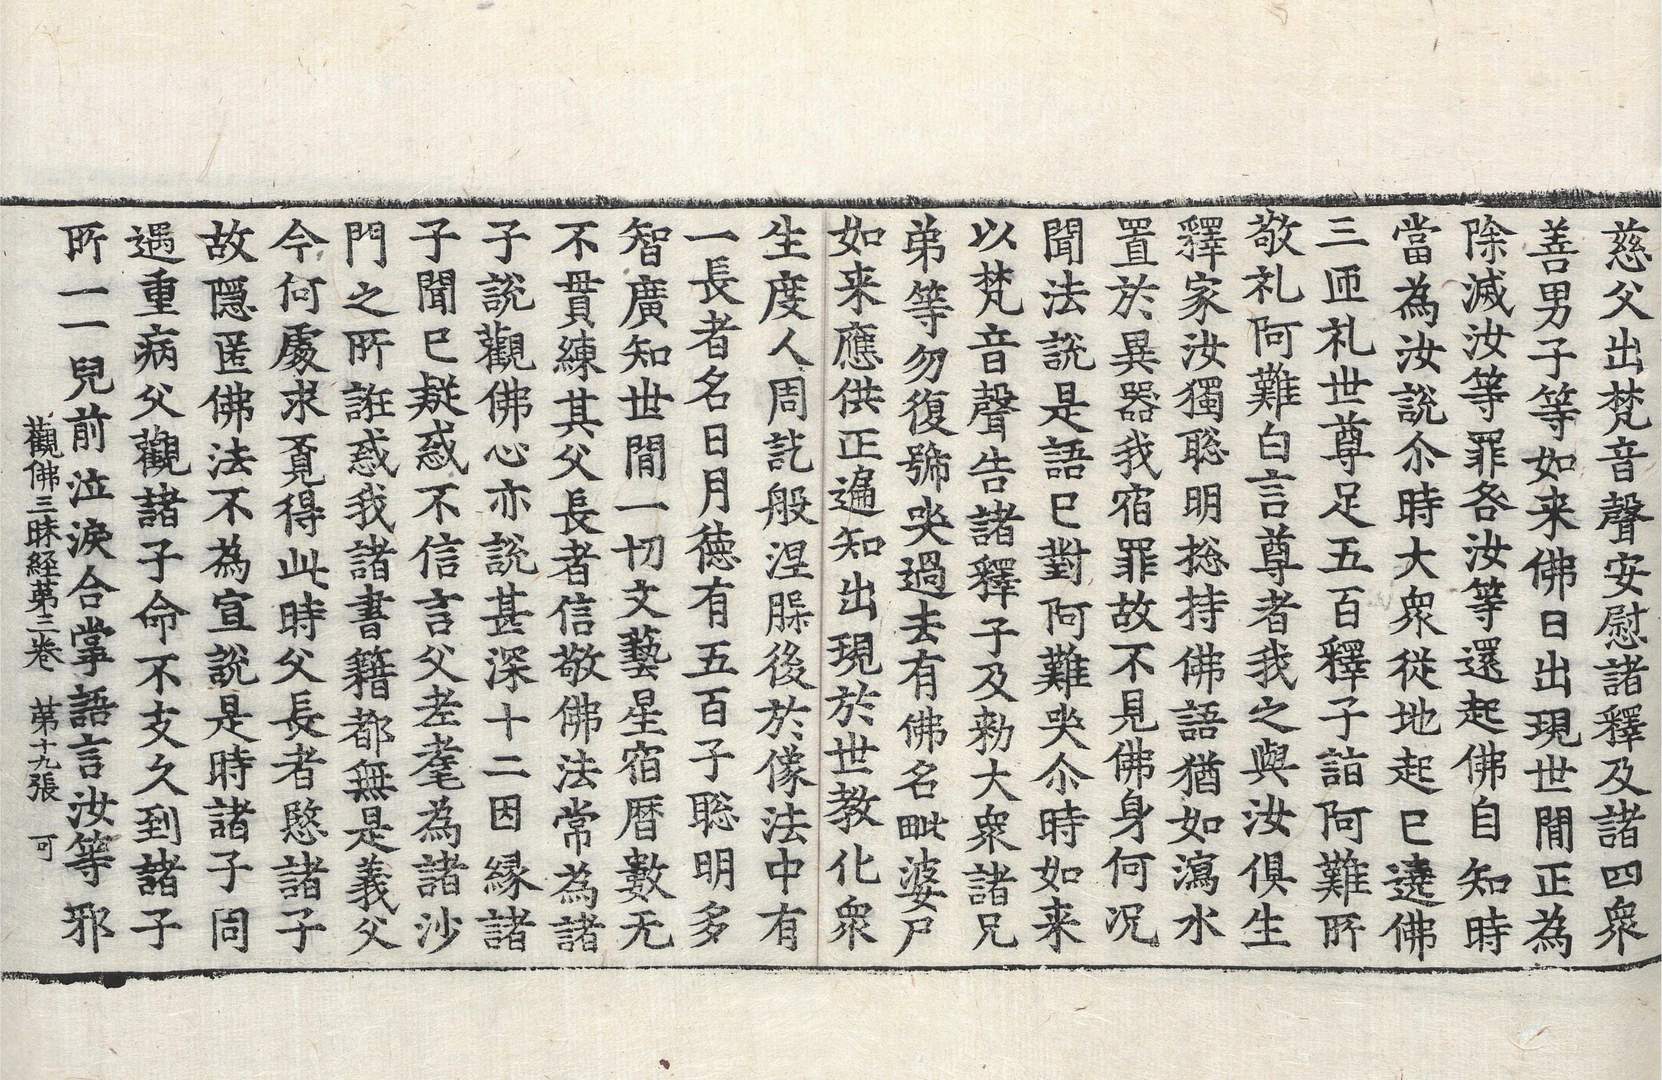 慈父出梵音聲安慰諸釋及諸四衆
善男子等如来佛日出現世間正為
除滅汝等罪咎汝等還起佛自知時
當為汝說尒時大衆從地起已遶佛
三匝礼世尊足五百釋子詣阿難所
敬礼阿難白言尊者我之與汝俱生
釋家汝獨聡明捴持佛語猶如瀉水
置於異器我宿罪故不見佛身何况
聞法說是語已對阿難哭尒時如来
以梵音聲告諸釋子及勑大衆諸兄
弟等勿復號哭過去有佛名毗婆尸
如来應供正遍知出現於世教化衆
生度人周訖般涅槃後於像法中有
一長者名日月徳有五百子聡明多
智廣知世間一切文藝星宿曆數无
不貫練其父長者信敬佛法常為諸
子說觀佛心亦說甚深十二因緣諸
子聞已疑惑不信言父老耄為諸沙
門之所誑惑我諸書籍都無是義父
今何處求覔得此時父長者愍諸子
故隱匿佛法不為宣說是時諸子同
遇重病父觀諸子命不支久到諸子
所一一兒前泣淚合掌語言汝等邪
觀佛三昧経第三卷 第十九張 可